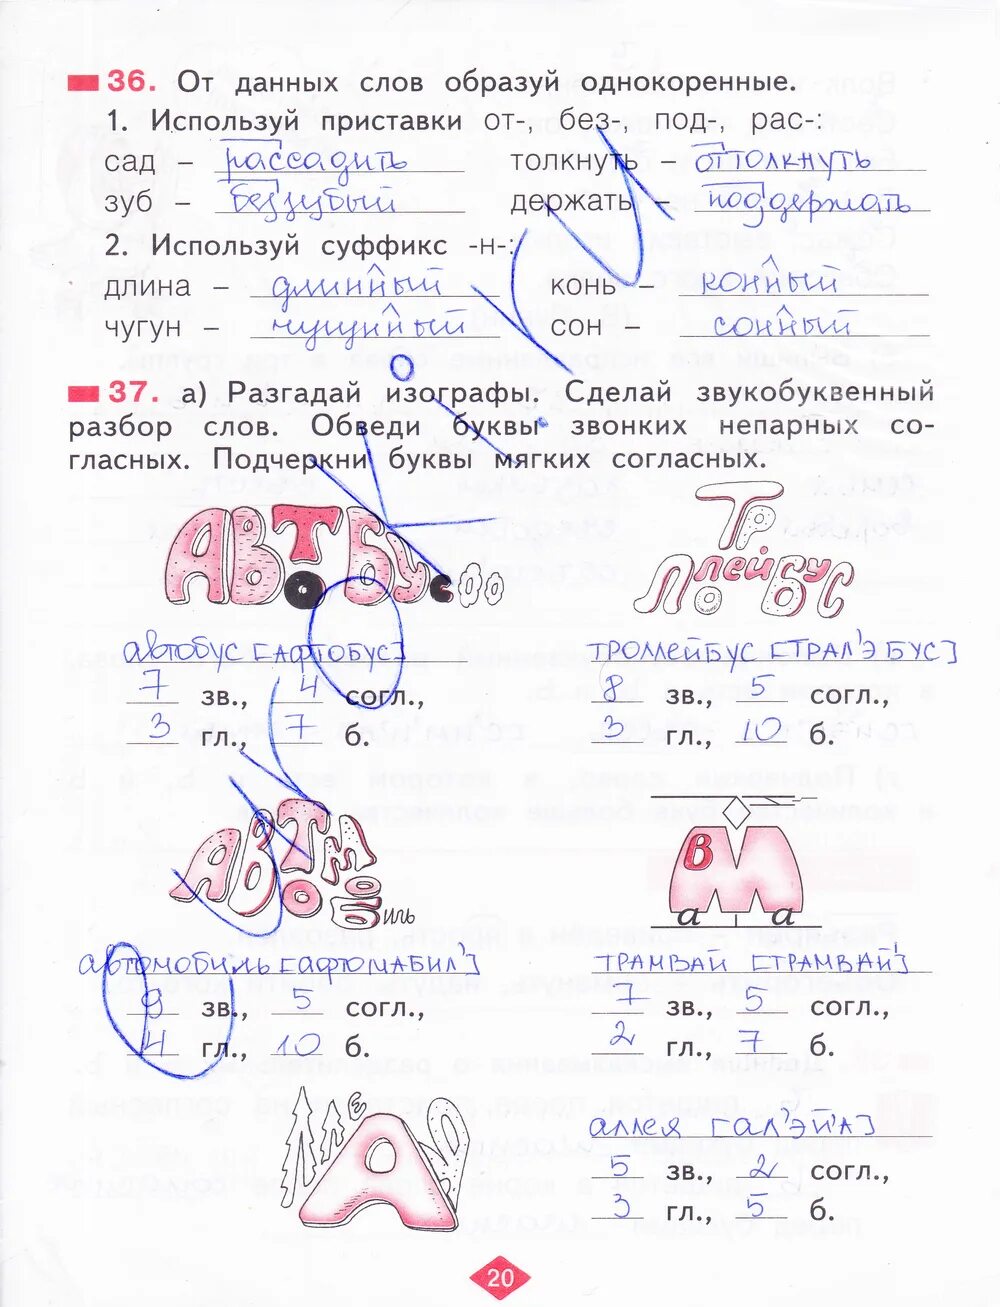 36. От данных слов образуй однокоренные.
1. Используй приставки от-, без-, под-, рас-:
сад – рассадить толкнуть – оттолкнуть
зуб – беззубый держать – поддержать
2. Используй суффикс -н-:
длина – длинный конь – конный
чугун – чугунный сон – сонный
37. а) Разгадай изографы. Сделай звукобуквенный
разбор слов. Обведи буквы звонких непарных со-
гласных. Подчеркни буквы мягких согласных.
АВТОБУС
ТРОЛЛЕЙБУС
автобус [афтобус] троллейбус [трал'эбус]
7 зв., 4 согл., 8 зв., 5 согл.,
3 гл., 7 б. 3 гл., 10 б.
АВТОМОБИЛЬ
ТРАМВАЙ
автомобиль [афтомабил'] трамвай [трамвай]
9 зв., 5 согл., 7 зв., 5 согл.,
4 гл., 10 б. 2 гл., 7 б.
аллея [ал'эй'а]
5 зв., 2 согл.,
3 гл., 5 б.
20